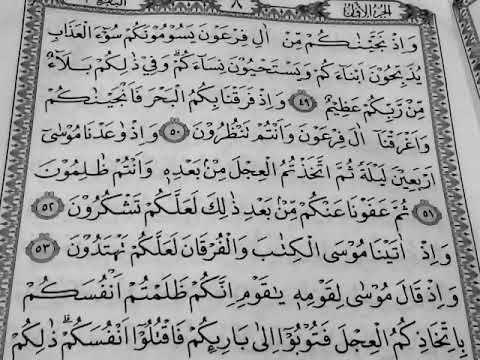 الجزء الاول ٨ البقرة ٢
وَاِذْ نَجَّيْنٰكُمْ مِّنْ اٰلِ فِرْعَوْنَ يَسُوْمُوْنَكُمْ سُوْۤءَ الْعَذَابِ
يُذَبِّحُوْنَ اَبْنَاۤءَكُمْ وَيَسْتَحْيُوْنَ نِسَاۤءَكُمْ ۗ وَفِيْ ذٰلِكُمْ بَلَاۤءٌ
مِّنْ رَّبِّكُمْ عَظِيْمٌ ٤٩ وَاِذْ فَرَقْنَا بِكُمُ الْبَحْرَ فَاَنْجَيْنٰكُمْ
وَاَغْرَقْنَآ اٰلَ فِرْعَوْنَ وَاَنْتُمْ تَنْظُرُوْنَ ٥٠ وَاِذْ وٰعَدْنَا مُوْسٰىٓ
اَرْبَعِيْنَ لَيْلَةً ثُمَّ اتَّخَذْتُمُ الْعِجْلَ مِنْۢ بَعْدِهٖ وَاَنْتُمْ ظٰلِمُوْنَ
٥١ ثُمَّ عَفَوْنَا عَنْكُمْ مِّنْۢ بَعْدِ ذٰلِكَ لَعَلَّكُمْ تَشْكُرُوْنَ ٥٢
وَاِذْ اٰتَيْنَا مُوْسَى الْكِتٰبَ وَالْفُرْقَانَ لَعَلَّكُمْ تَهْتَدُوْنَ ٥٣
وَاِذْ قَالَ مُوْسٰى لِقَوْمِهٖ يٰقَوْمِ اِنَّكُمْ ظَلَمْتُمْ اَنْفُسَكُمْ
بِاتِّخَاذِكُمُ الْعِجْلَ فَتُوْبُوْٓا اِلٰى بَارِىِٕكُمْ فَاقْتُلُوْٓا اَنْفُسَكُمْ ۗ ذٰلِكُمْ